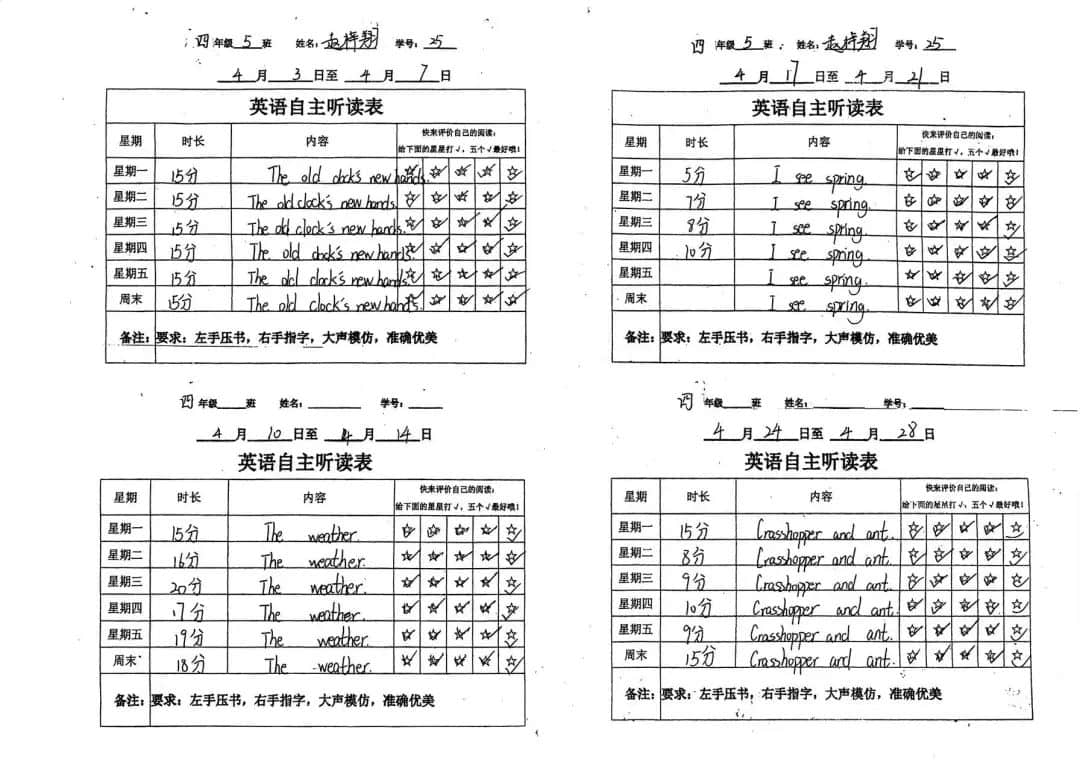 四年级5班 姓名：赵梓翔 学号：25
4月3日至4月7日
英语自主听读表
星期 时长 内容 快来评价自己的阅读：
给下面的星星打√，五个√最好哦！
星期一 15分 The old clock's new hands.
星期二 15分 The old clock's new hands.
星期三 15分 The old clock's new hands.
星期四 15分 The old clock's new hands.
星期五 15分 The old clock's new hands.
周末 15分 The old clock's new hands.
备注： 要求：左手压书，右手指字，大声模仿，准确优美
四年级5班 姓名：赵梓翔 学号：25
4月17日至4月21日
英语自主听读表
星期 时长 内容 快来评价自己的阅读：
给下面的星星打√，五个√最好哦！
星期一 5分 I see spring.
星期二 7分 I see spring.
星期三 8分 I see spring.
星期四 10分 I see spring.
星期五 I see spring.
周末 I see spring.
备注： 要求：左手压书，右手指字，大声模仿，准确优美
四年级 班 姓名： 学号：
4月10日至4月14日
英语自主听读表
星期 时长 内容 快来评价自己的阅读：
给下面的星星打√，五个√最好哦！
星期一 15分 The weather.
星期二 16分 The weather.
星期三 20分 The weather.
星期四 17分 The weather.
星期五 19分 The weather.
周末 18分 The weather.
备注： 要求：左手压书，右手指字，大声模仿，准确优美
四年级 班 姓名： 学号：
4月24日至4月28日
英语自主听读表
星期 时长 内容 快来评价自己的阅读：
给下面的星星打√，五个√最好哦！
星期一 15分 Grasshopper and ant.
星期二 8分 Grasshopper and ant.
星期三 9分 Grasshopper and ant.
星期四 10分 Grasshopper and ant.
星期五 9分 Grasshopper and ant.
周末 15分 Grasshopper and ant.
备注： 要求：左手压书，右手指字，大声模仿，准确优美